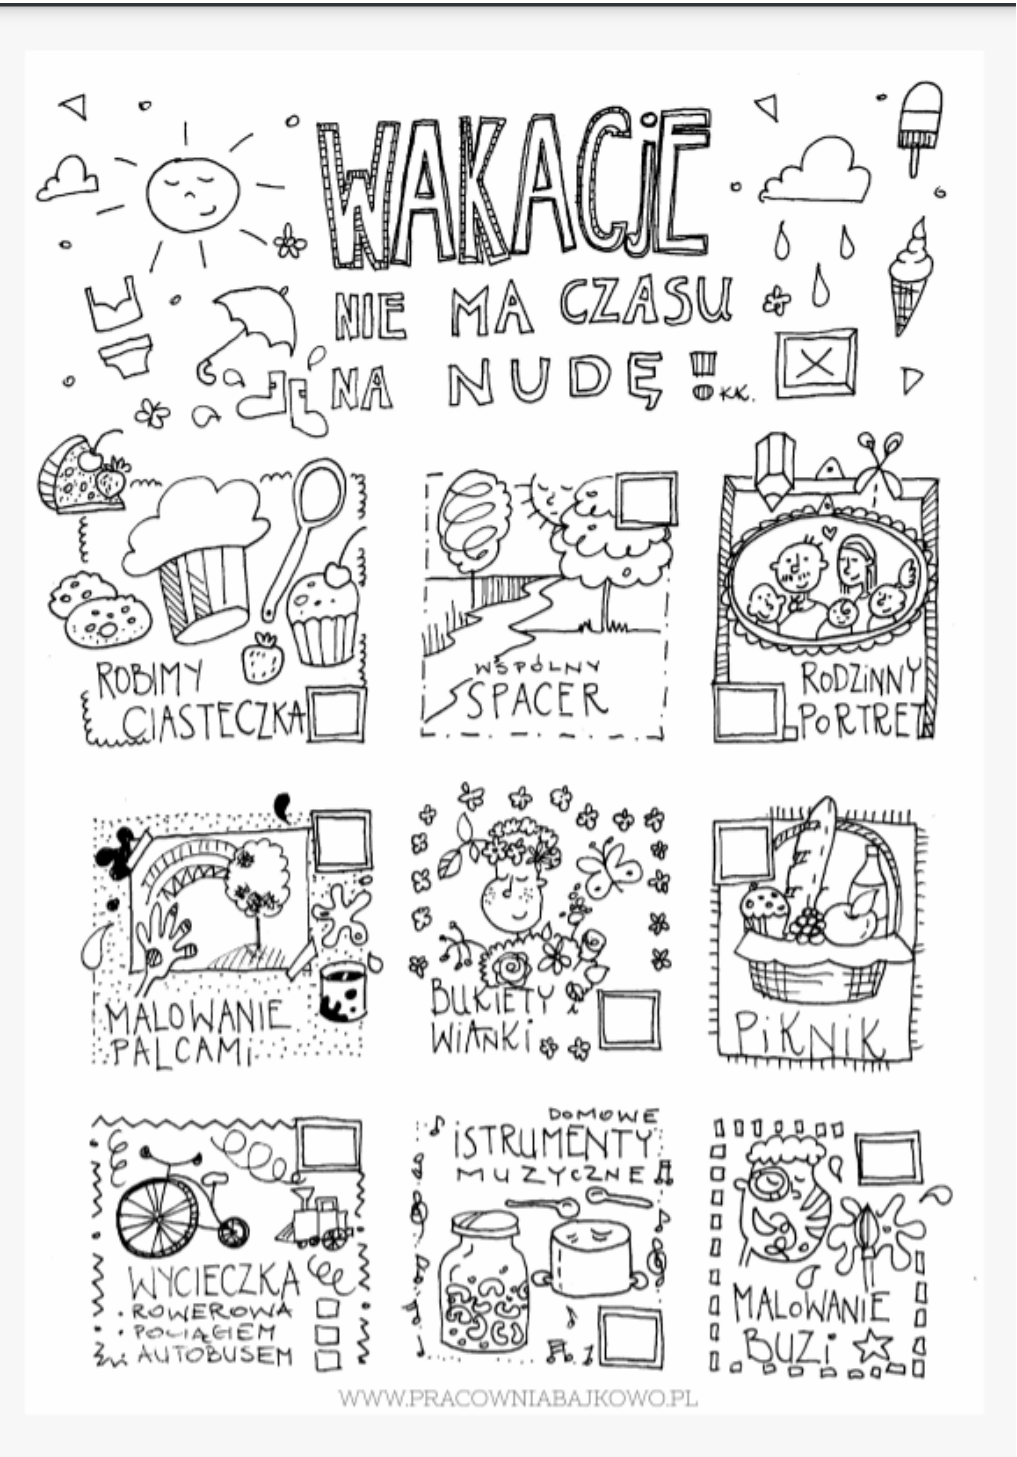 WAKACJE
NIE MA CZASU
NA NUDĘ! KK.
ROBIMY
CIASTECZKA
WSPÓLNY
SPACER
RODZINNY
PORTRET
MALOWANIE
PALCAMI
BUKIETY i
WIANKI
PIKNIK
WYCIECZKA
• ROWEROWA
• POCIĄGIEM
• AUTOBUSEM
DOMOWE
iSTRUMENTY
MUZYCZNE
MALOWANIE
BUZi
WWW.PRACOWNIABAJKOWO.PL